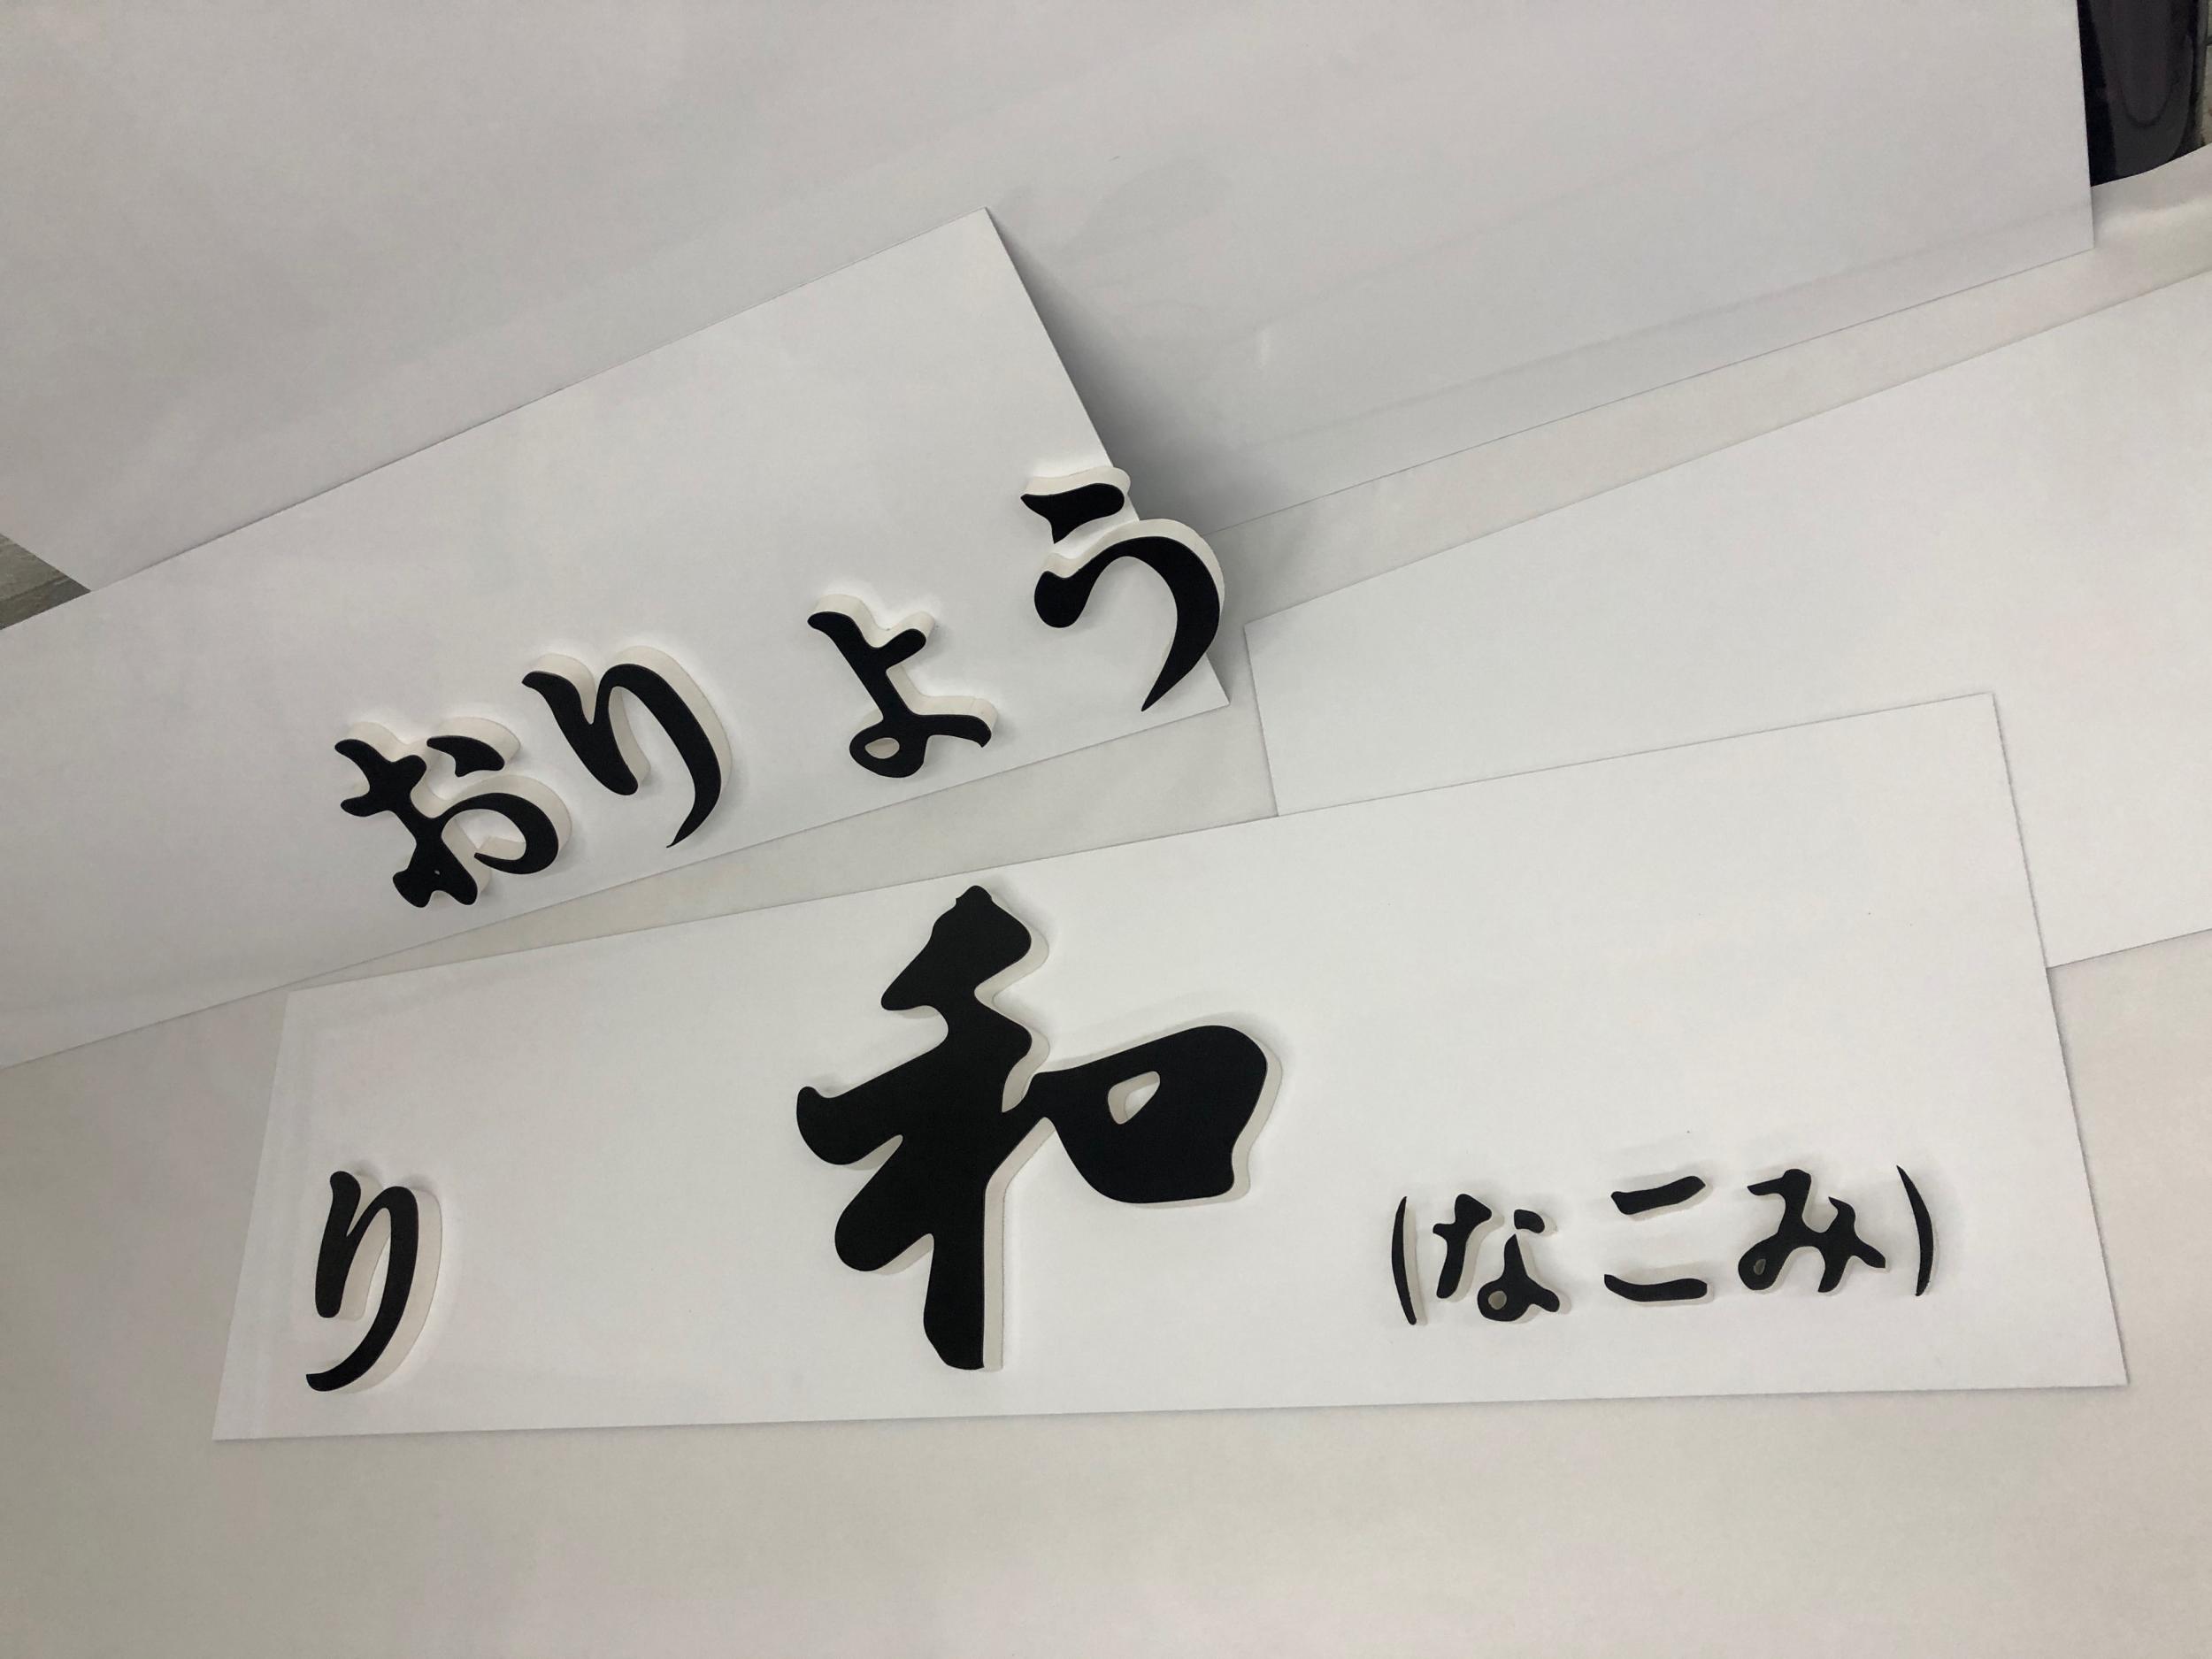 おりょう
り 和 (なこみ)